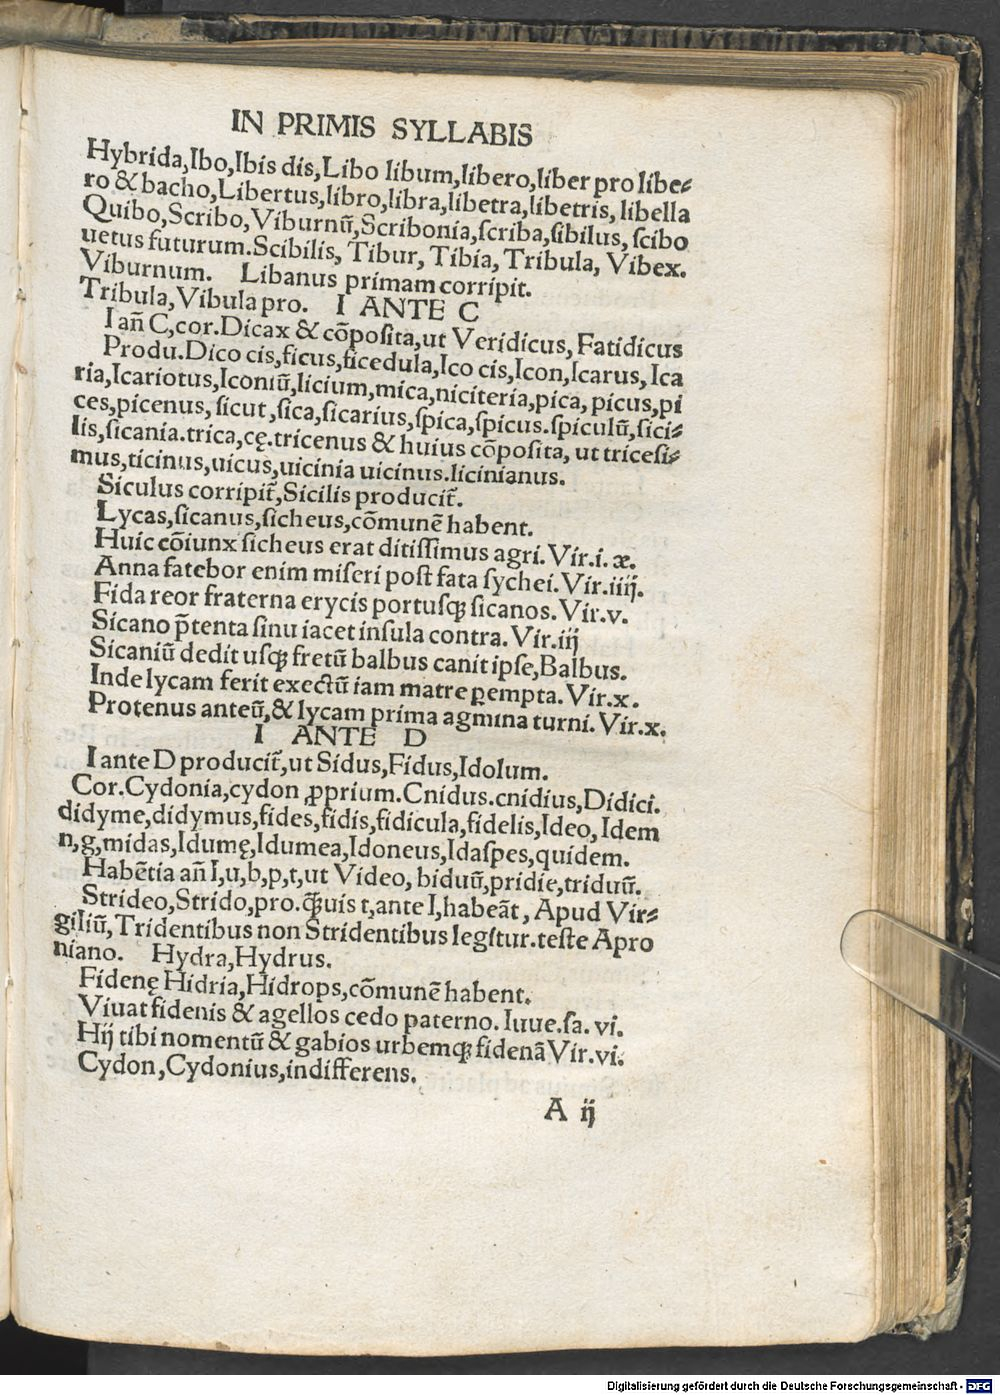 IN PRIMIS SYLLABIS
Hybrida,Ibo,Ibis dis,Libo libum,libero,liber pro libe⸗
ro & bacho,Libertus,libro,libra,libetra,libetris, libella
Quibo,Scribo,Viburnū,Scribonia,ſcriba,ſibilus, ſcibo
uetus futurum.Scibilis, Tibur, Tibia, Tribula, Vibex.
Viburnum. Libanus primam corripit.
Tribula,Vibula pro. I ANTE C
I añ C,cor.Dicax & cōpoſita,ut Veridicus, Fatidicus
Produ.Dico cis,ficus,ficedula,Ico cis,Icon,Icarus, Ica
ria,Icariotus,Iconiū,licium,mica,niciteria,pica, picus,pi
ces,picenus, ſicut,ſica,ſicarius,ſpica,ſpicus.ſpiculū,ſici⸗
lis,ſicania.trica,cę.tricenus & huius cōpoſita, ut triceſi⸗
mus,ticinus,uicus,uicinia uicinus.licinianus.
Siculus corripit̄,Sicilis producit̄.
Lycas,ſicanus,ſicheus,cōmunē habent.
Huic cōiunx ſicheus erat ditiſſimus agri. Vir.i. æ.
Anna fatebor enim miſeri poſt fata ſychei. Vir.iiij.
Fida reor fraterna erycis portuſqꝫ ſicanos. Vir.v.
Sicano p̄tenta ſinu iacet inſula contra. Vir.iij
Sicaniū dedit uſqꝫ fretū balbus canit ipſe, Balbus.
Inde lycam ferit exectū iam matre ꝑempta. Vir.x.
Protenus anteū,& lycam prima agmina turni. Vir.x.
I ANTE D
I ante D producit̄,ut Sidus,Fidus,Idolum.
Cor.Cydonia,cydon ꝓprium.Cnidus.cnidius,Didici.
didyme,didymus,fides,fidis,fidicula,fidelis,Ideo, Idem
n,g,midas,Idumę,Idumea,Idoneus,Idaſpes,quidem.
Habētia añ I,u,b,p,t,ut Video, biduū,pridie,triduū.
Strideo,Strido,pro.q̄uis t,ante I,habeāt, Apud Vir⸗
giliū,Tridentibus non Stridentibus legitur.teſte Apro
niano. Hydra,Hydrus.
Fidenę Hidria,Hidrops,cōmunē habent.
Viuat fidenis & agellos cedo paterno. Iuue.ſa. vi.
Hij tibi nomentū & gabios urbemqꝫ fidenā Vir.vi.
Cydon,Cydonius,indifferens.
A ij
Digitalisierung gefördert durch die Deutsche Forschungsgemeinschaft - DFG